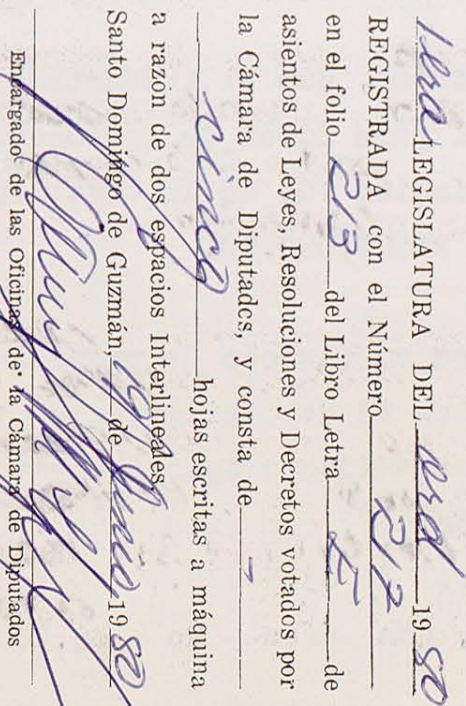 1era LEGISLATURA DEL ord 1980
REGISTRADA con el Número 217
en el folio 213 del Libro Letra de
asientos de Leyes, Resoluciones y Decretos votados por
la Cámara de Diputados, y consta de
cinco hojas escritas a máquina
a razón de dos espacios Interlineales
Santo Domingo de Guzmán, 19 de Junio 1980
Encargado de las Oficinas de la Cámara de Diputados